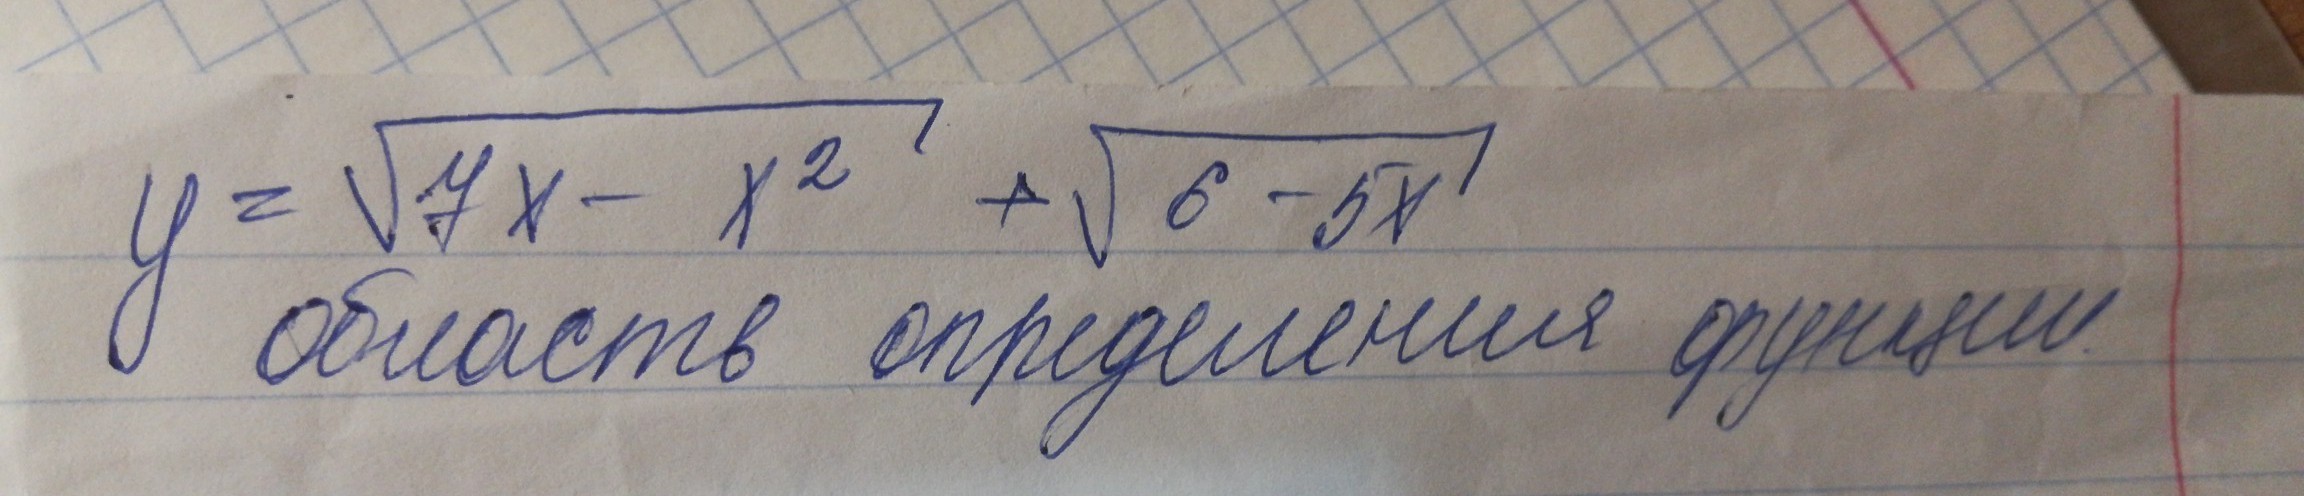 y = √7x - x² + √6 - 5x
область определения функции.